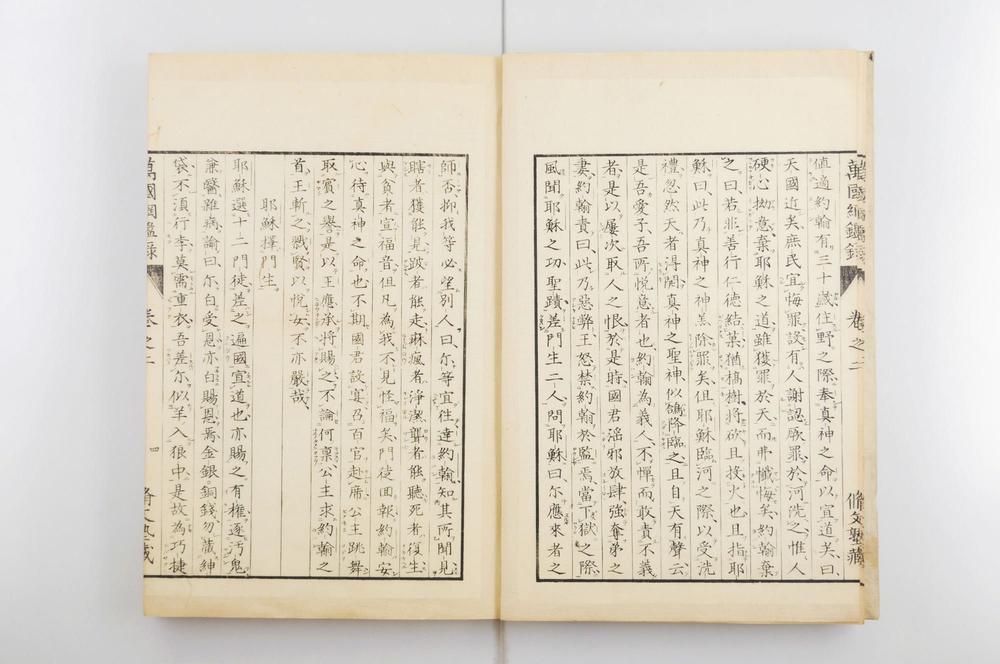 萬國綱鑑錄 卷之二 脩文塾藏
値適約翰有三十歳住野之際奉真神之命以宣道矣曰
天國近矣庶民宜悔罪設有人謝認厥罪於河洗之惟人
硬心拗意棄耶穌之道雖獲罪於天而弗懺悔矣約翰棄
之曰若非善行仁德結菓猶槁樹將砍且投火也且指耶
穌曰此乃真神之神羔除罪矣但耶穌臨河之際以受洗
禮忽然天者得開真神之聖神似鴿降臨之且自天有聲云
是吾愛子吾所悅意者也約翰為義人不憚而敢責不義
者是以屢次取人之恨於是時國君淫邪放肆強奪弟之
妻約翰責曰此乃惡弊王怒禁約翰於監焉當下獄之際
風聞耶穌之功聖蹟差門生二人問耶穌曰尔應來者之
師否抑我等必望別人曰尔等宜往達約翰知其所聞見
瞎者獲能見跛者能走痳瘋者淨潔聾者能聽死者復生
與貧者宣福音但凡為我不見怪福矣門徒囬報約翰安
心待真神之命也不期國君設宴乃百官赴席公主跳舞
取賓之譽是以王應承將賜之不論何稟公主求約翰之
首王斬之戮賢以悅女不亦嚴哉
耶穌擇門生
耶穌選十二門徒差之遍國宣道也亦賜之有權逐汚鬼
兼醫雜病諭曰尔白受恩亦白賜恩焉金銀銅錢勿藏紳
袋不須行李莫需重衣吾差尔似羊入狼中是故為巧捷
萬國綱鑑錄 卷之二 四 脩文塾藏